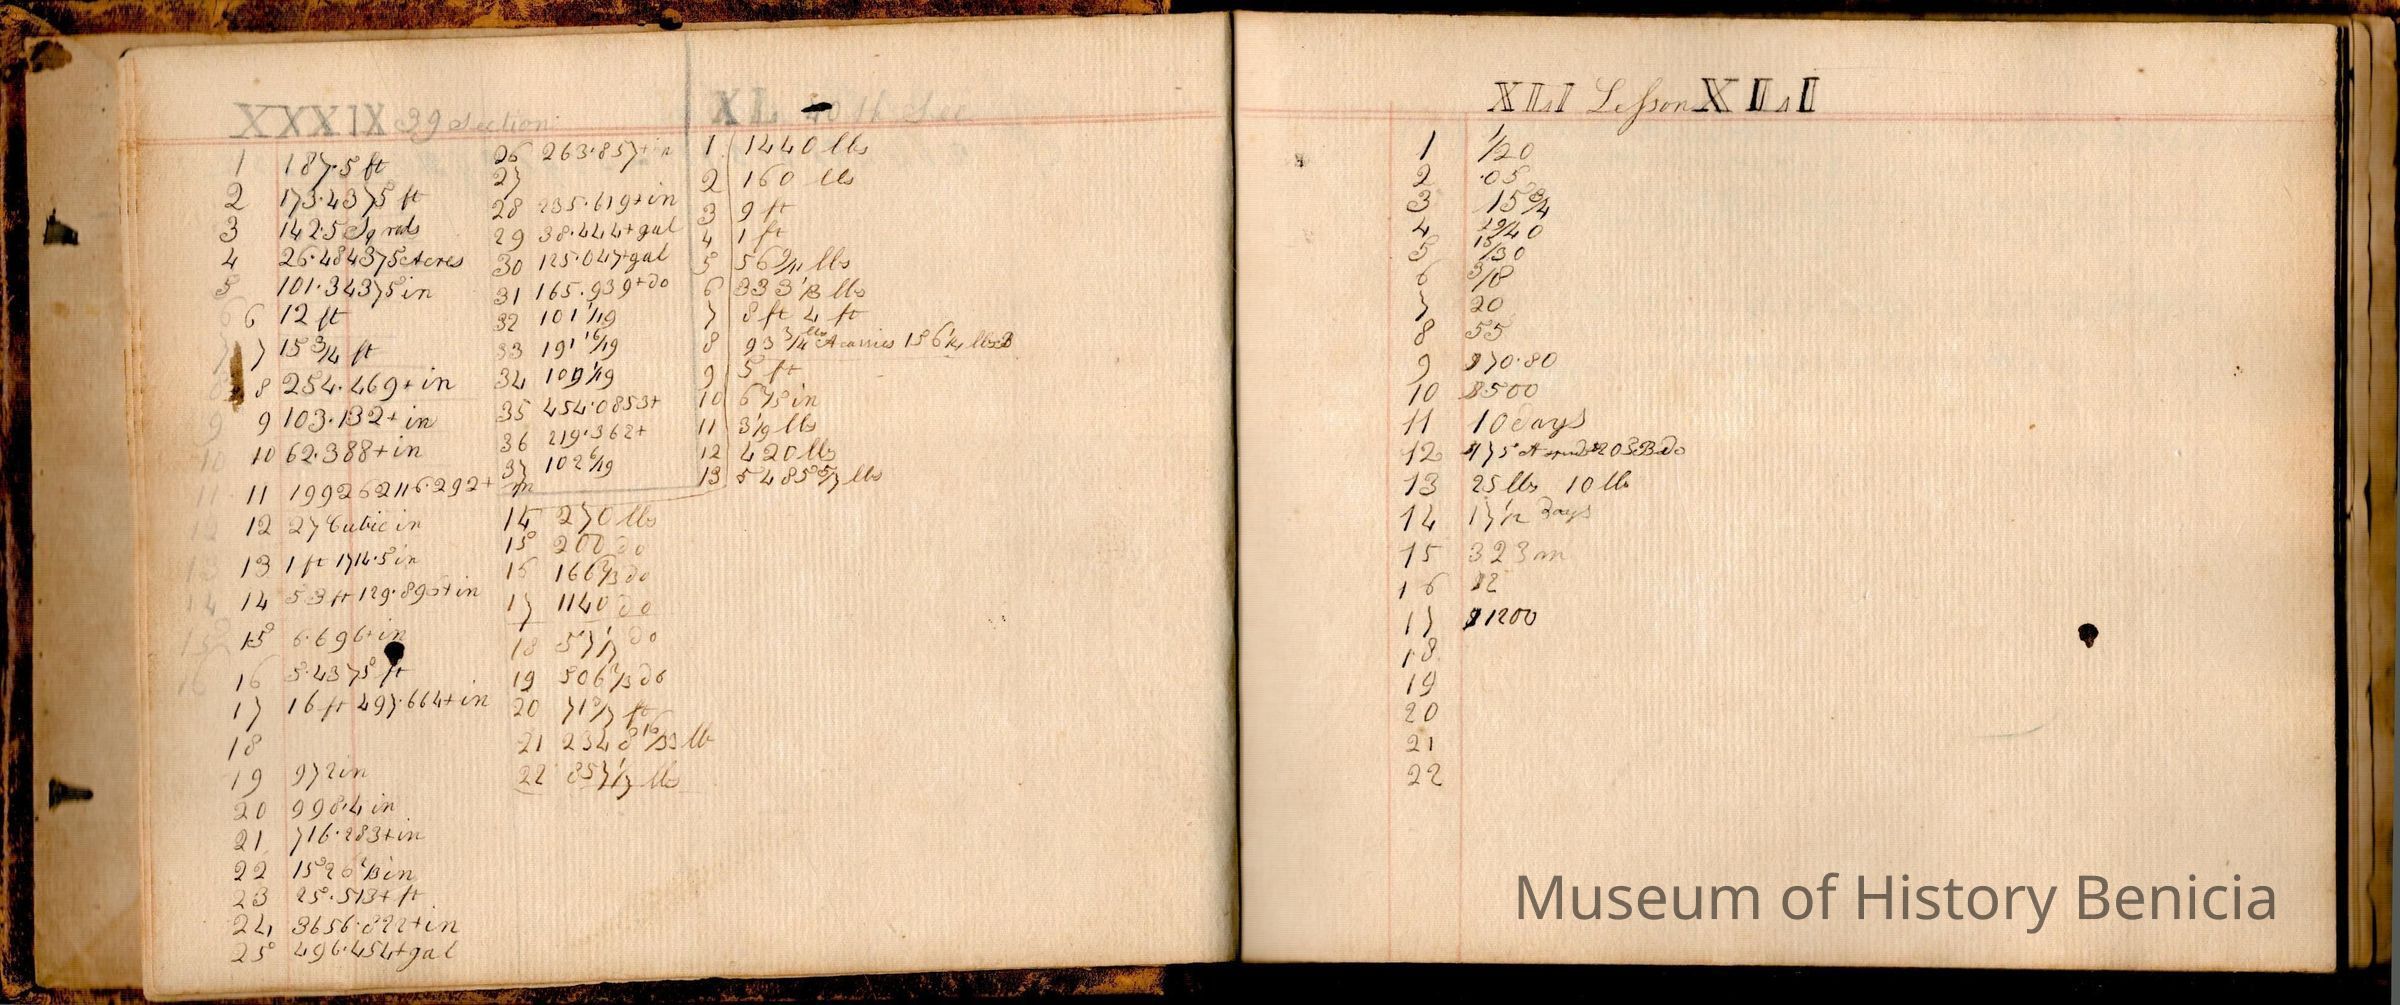 XXXIX 39 Section
1 187.5 ft
2 173.4375 ft
3 142.5 Sq rods
4 26.484375 Acres
5 101.34375 in
6 12 ft
7 15 3/4 ft
8 254.469+ in
9 103.132+ in
10 62.388+ in
11 199262116.292+ in
12 27 Cubic in
13 1 ft 1714.5 in
14 53 ft 129.896+ in
15 6.696+ in
16 5.4375 ft
17 16 ft 497.664+ in
18
19 972 in
20 998.4 in
21 716.283+ in
22 1526 1/3 in
23 25.513+ ft
24 3656.822+ in
25 496.454+ gal
26 263.857+ in
27
28 235.619+ in
29 38.444+ gal
30 125.047+ gal
31 165.939+ do
32 101 1/19
33 191 16/19
34 109 1/19
35 454.0853+
36 219.362+
37 102 6/19
XL 40th Sec
1 1440 lbs
2 160 lbs
3 9 ft
4 1 ft
5 56 1/4 lbs
6 333 1/3 lbs
7 8 ft 4 ft
8 93 3/4 lbs A carries 156 1/4 lbs B
9 5 ft
10 6 2/5 in
11 3 1/9 lbs
12 420 lbs
13 5485 5/7 lbs
14 270 lbs
15 200 do
16 166 2/3 do
17 1140 do
18 57 1/7 do
19 506 2/3 do
20 71 5/7 ft
21 2348 16/33 lb
22 857 1/7 lbs
XLI Lesson XLI
1 1/20
2 .05
3 15 3/4
4 29/40
5 15/30
6 3/18
7 20
8 55
9 $70.80
10 $500
11 10 days
13 25 lbs 10 lb
14 17 1/2 days
15 323 m
16 $2
17 $1200
18
19
20
21
22
Museum of History Benicia